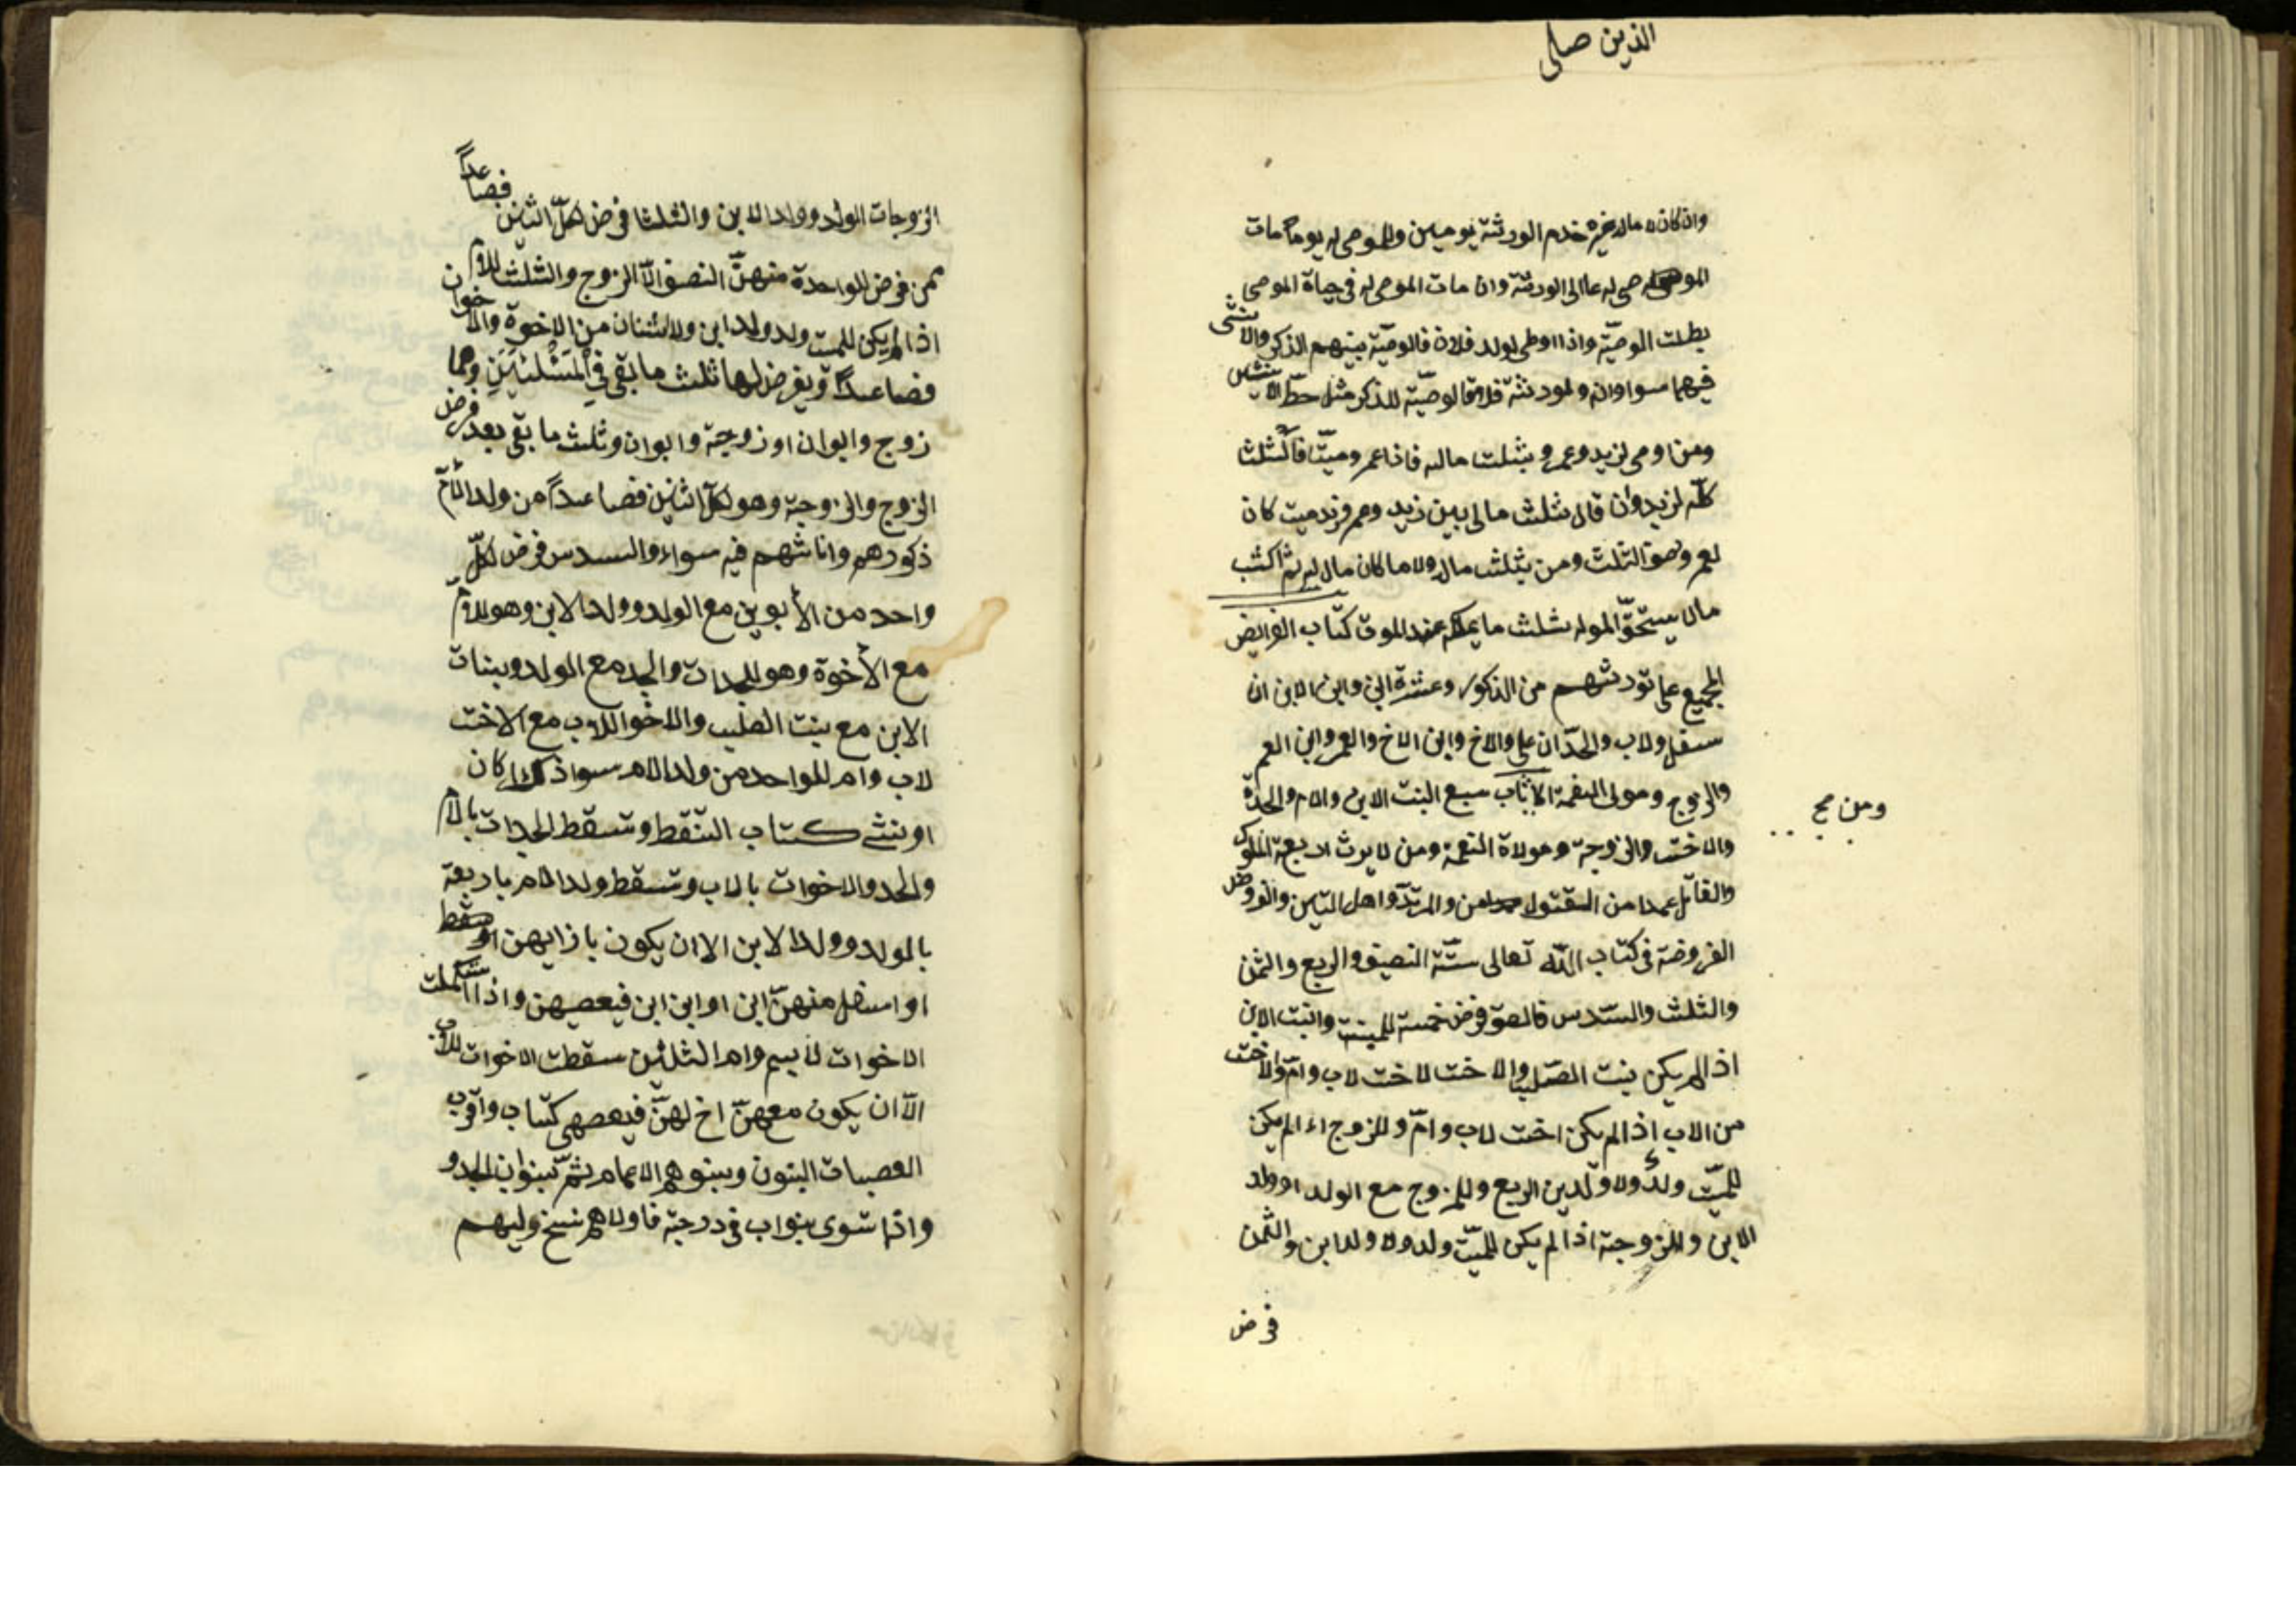 الذين صلى
وان كان لا مال غيره خدم الورثة يومين وللموصى له يوما مات
الموصى له على الورثة وان مات الموصى له فى حياة الموصى
بطلت الوصيّة واذا اوطى لولد فلان فالوصيّة بينهم الذكر والانثى
فيهما سوا وان ولورثة فلان فالوصيّة للذكر مثل حظّ الانثيين
ومن اوصى لزيد وعمرو بثلث ماله فاذا عمرو ميتّ فالثلث
كلّه لزيد وان قال ثلث مالى بين زيد وعمرو زيد ميت كان
لعمرو نصف الثلث ومن بثلث ماله ولا ما كان مال له ثم اكتسب
مال يستحقّ الموله ثلث ما يملكه عند الموت كتاب الفرايض
المجميع على تورثهم من الذكور وعشرة ابن وابن الابن ان
سفل ولاب والجدّ ان على والاخ وابن الاخ والعم وابن العم
والزوج ومولى النعمة الاناث سبع البنت الابن والام والجدّة
ومن صح
والاخت والزوجة ومولاة النعمة ومن لا يرث اربعة المملوك
والقاتل عمدا من المقتول من والمرتدّ واهل التين والفروض
الفروضة فى كتاب اللّه تعالى ستّة النصيف والربع والثمن
والثلث والسّدس فالنصف فرض خمسة للبنت وابنت الابن
اذا لم يكن بنت الصّلب والاخت لاخت لاب وامّ والاخت
من الاب اذا لم يكن اخت لاب وامّ وللزوج اذا لم يكن
للميّت ولدٌ ولا ولد بن الربع وللزوج مع الولد او ولد
الابن وللزوجة اذا لم يكن للميّت ولد ولا ولد ابن والثمن
فرض
الزوجات الولد وولد الابن والثلثا فرض لكلّ اثنين فصاعداً
ممن فرض للواحدة منهنّ النصف الّا الزوج والثلث للامّ
اذا لم يكن للميت ولد ولد ابن ولا اثنان من الاخوة والاخوان
فصاعداً ويفرض لها ثلث ما بقى فى المسئلتين وهما
زوج وابوان او زوجة وابوان وثلث ما بقى بعد فرض
الزوج والزوجة وهو لكلّ اثنين فصاعداً من ولد الامّ
ذكورهم واناثهم فيه سواء والسدس فرض لكلّ
واحد من الأبوين مع الولد وولد الابن وهو للامّ
مع الأخوة وهو للجدات والجد مع الولد وبنات
الابن مع بنت الصلب والاخوا للاب مع الاخت
لاب وام للواحد من ولد الام سوا ذكرا كان
او نثى كتاب السّقط وتسقط الجدات بالام
والجد والاخوات بالاب وتسقط ولد الام باربعة
بالولد وولد الابن الا ان يكون بازايهن او
او اسفل منهنّ ابن او ابن ابن فيعصبهن واذا استكملت
الاخوات لابيم وام الثلثين سقطت الاخوات للاب
الّا ان يكون معهنّ اخ لهنّ فيعصهى كتّاب واقرب
العصبات البنون وبنوهم الاعمام ثمّ بنو ابن الجد و
واذا ستوى بنو اب فى درجة فاولاهم نسخ وليهم